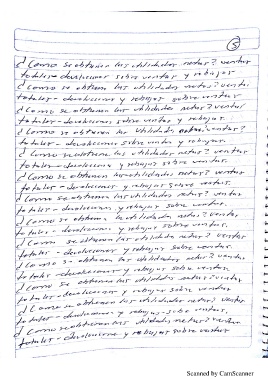 5
¿Como se obtienen las utilidades netas? ventas
totales - devoluciones sobre ventas y rebajas
¿Como se obtienen las utilidades netas? ventas
totales - devoluciones y rebajas sobre ventas
¿Como se obtienen las utilidades netas? ventas
totales - devoluciones sobre ventas y rebajas
¿Como se obtienen las utilidades netas? ventas
totales - devoluciones y rebajas sobre ventas.
¿Como se obtienen las utilidades netas? ventas
totales - devoluciones y rebajas sobre ventas.
¿Como se obtienen las utilidades netas? ventas
totales - devoluciones y rebajas sobre ventas.
¿Como se obtienen las utilidades netas? ventas
totales - devoluciones y rebajas sobre ventas.
¿Como se obtienen las utilidades netas? ventas
totales - devoluciones y rebajas sobre ventas.
¿Como se obtienen las utilidades netas? ventas
totales - devoluciones y rebajas sobre ventas.
¿Como se obtienen las utilidades netas? ventas
totales - devoluciones y rebajas sobre ventas
¿Como se obtienen las utilidades netas? ventas
totales - devoluciones y rebajas sobre ventas.
¿Como se obtienen las utilidades netas? ventas
totales - devoluciones y rebajas sobre ventas
Scanned by CamScanner